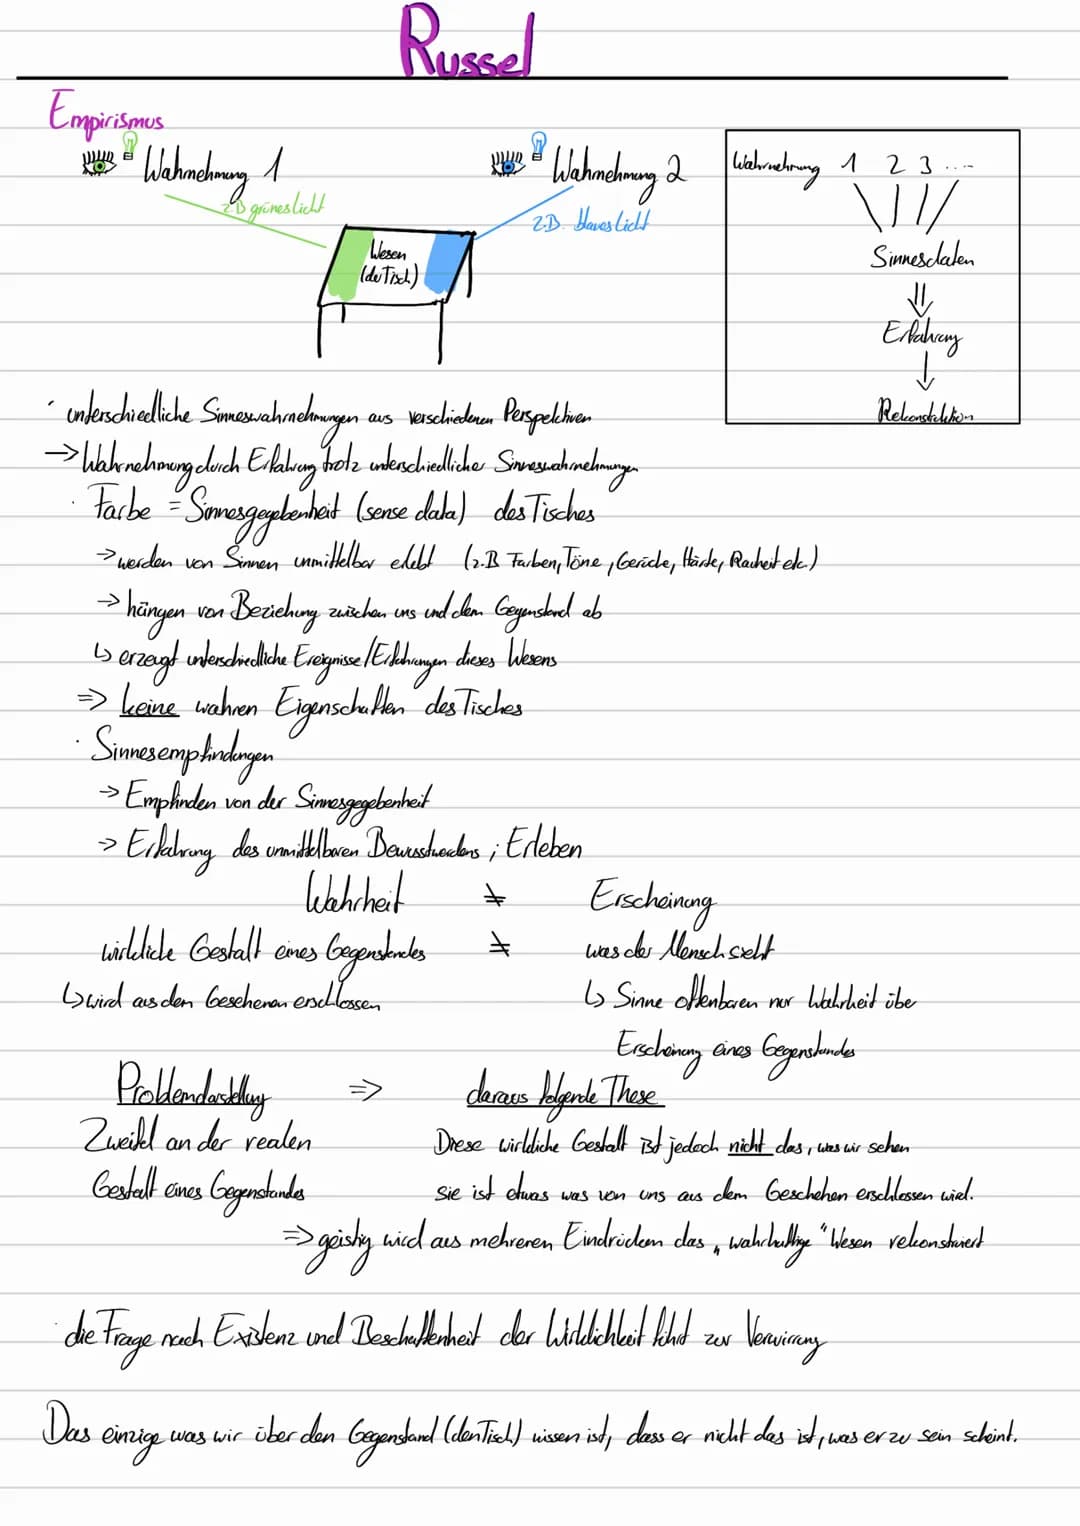 Russel
Empirismus
Wahrnehmung 1
z.B grünes Licht
Wahrnehmung 2
z.B. blaues Licht
Wesen
(der Tisch)
Wahrnehmung 1 2 3 ....
Sinnesdaten
⇓
Erfahrung
↓
Rekonstruktion
· unterschiedliche Sinneswahrnehmungen aus verschiedenen Perspektiven
→ Wahrnehmung durch Erfahrung trotz unterschiedlicher Sinneswahrnehmungen
· Farbe = Sinnesgegebenheit (sense data) des Tisches
→ werden von Sinnen unmittelbar erlebt (z.B Farben, Töne, Gerüche, Härte, Rauheit etc.)
→ hängen von Beziehung zwischen uns und dem Gegenstand ab
↳ erzeugt unterschiedliche Ereignisse/Erfahrungen dieses Wesens
=> keine wahren Eigenschaften des Tisches
· Sinnesempfindungen
→ Empfinden von der Sinnesgegebenheit
→ Erfahrung des unmittelbaren Bewusstwerdens ; Erleben
Wahrheit ≠ Erscheinung
wirkliche Gestalt eines Gegenstandes ≠ was der Mensch sieht
↳ wird aus dem Gesehenen erschlossen
↳ Sinne offenbaren nur Wahrheit über
Erscheinung eines Gegenstandes
Problemdarstellung => daraus folgende These
Zweifel an der realen
Gestalt eines Gegenstandes
Diese wirkliche Gestalt ist jedoch nicht das, was wir sehen
sie ist etwas was von uns aus dem Geschehen erschlossen wird.
=> geistig wird aus mehreren Eindrücken das „wahrhaftige“ Wesen rekonstruiert
· die Frage nach Existenz und Beschaffenheit der Wirklichkeit führt zur Verwirrung
Das einzige was wir über den Gegenstand (den Tisch) wissen ist, dass er nicht das ist, was er zu sein scheint.